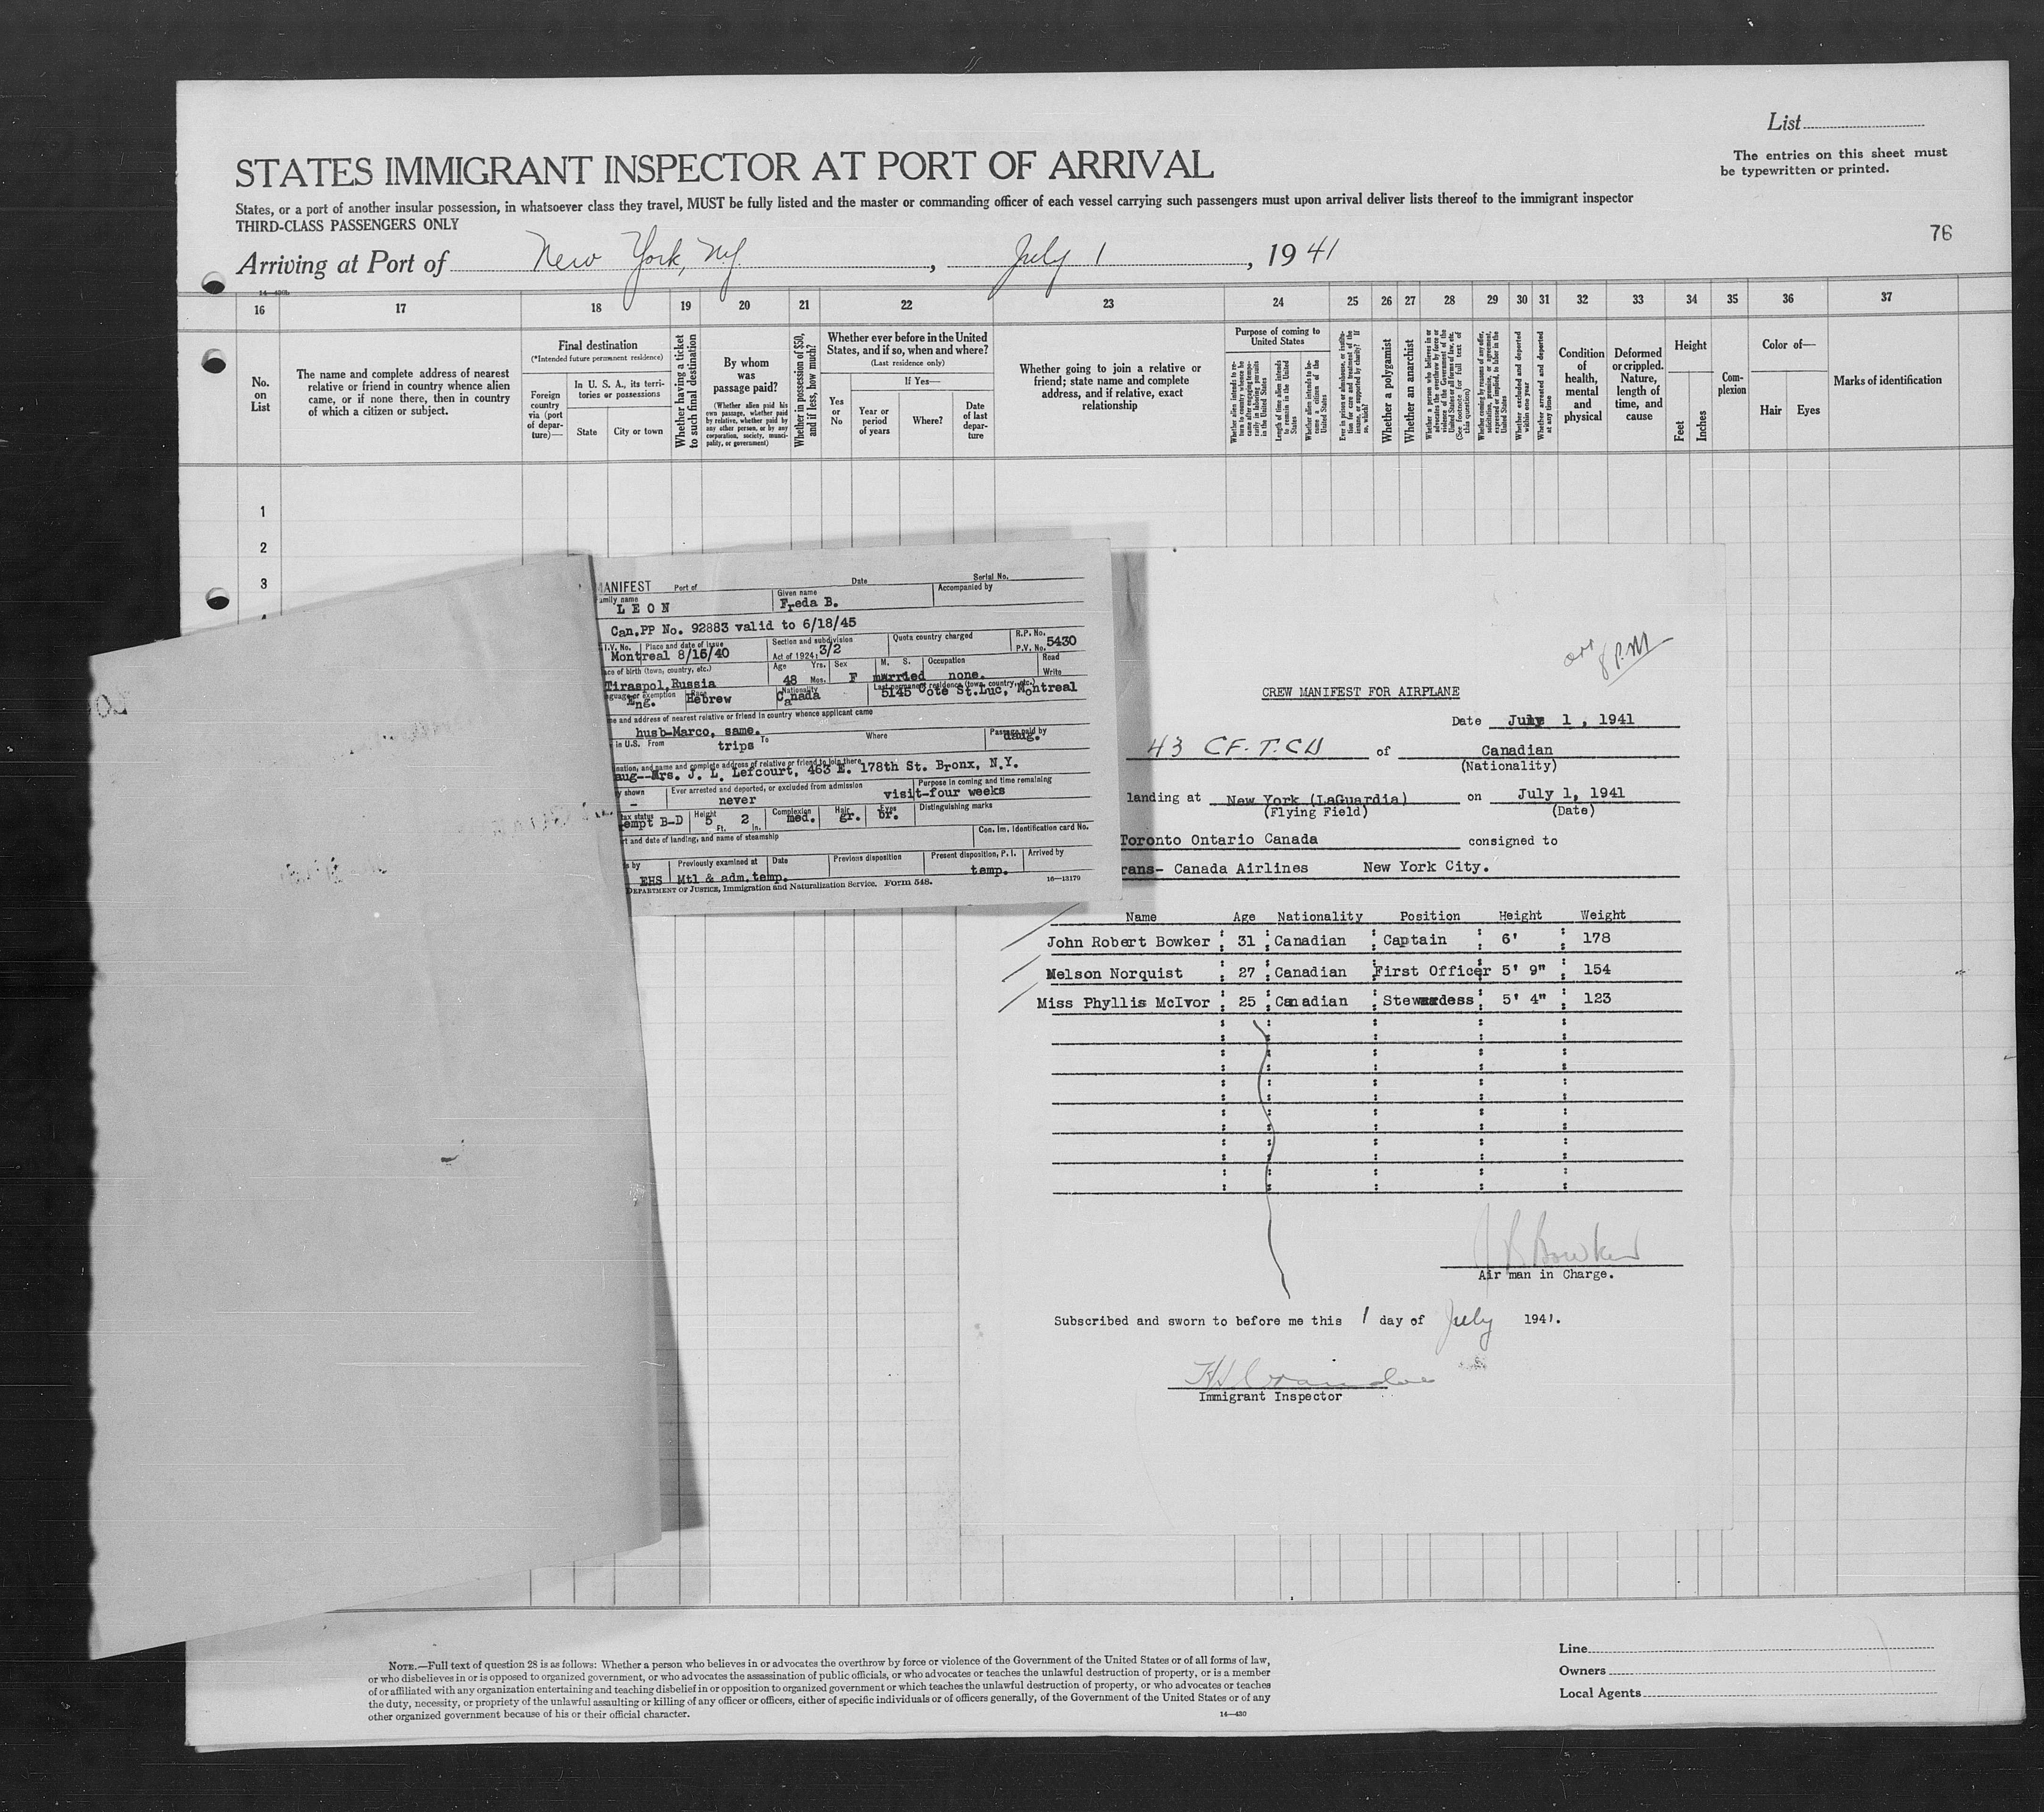 List
The entries on this sheet must
be typewritten or printed.
STATES IMMIGRANT INSPECTOR AT PORT OF ARRIVAL
States, or a port of another insular possession, in whatsoever class they travel, MUST be fully listed and the master or commanding officer of each vessel carrying such passengers must upon arrival deliver lists thereof to the immigrant inspector
THIRD-CLASS PASSENGERS ONLY
76
Arriving at Port of New York, N.Y. , July 1 , 1941
16 17 18 19 20 21 22 23 24 25 26 27 28 29 30 31 32 33 34 35 36 37
No. on List
The name and complete address of nearest
relative or friend in country whence alien
came, or if none there, then in country
of which a citizen or subject.
Final destination
(*Intended future permanent residence)
Foreign country via (port of departure)—
In U. S. A., its territories or possessions
State
City or town
Whether having a ticket to such final destination
By whom was passage paid?
(Whether alien paid his own passage, whether paid by relative, whether paid by any other person, or by any corporation, society, municipality, or government)
Whether in possession of $50, and if less, how much?
Whether ever before in the United
States, and if so, when and where?
(Last residence only)
Yes or No
If Yes—
Year or period of years
Where?
Date of last departure
Whether going to join a relative or
friend; state name and complete
address, and if relative, exact
relationship
Purpose of coming to
United States
Whether alien intends to return to country whence he came after engaging temporarily in laboring pursuits in the United States
Length of time alien intends to remain in the United States
Whether alien intends to become a citizen of the United States
Ever in prison or almshouse, or institution for care and treatment of the insane, or supported by charity? If so, which?
Whether a polygamist
Whether an anarchist
Whether a person who believes in or advocates the overthrow by force or violence of the Government of the United States or all forms of law, etc. (See footnote for full text of this question)
Whether coming by reasons of any offer, solicitation, promise, or agreement, expressed or implied, to labor in the United States
Whether excluded and deported within one year
Whether arrested and deported at any time
Condition of health, mental and physical
Deformed or crippled. Nature, length of time, and cause
Height
Feet
Inches
Complexion
Color of—
Hair
Eyes
Marks of identification
1
2
3
MANIFEST Port of Date Serial No.
Family name LEON Given name Freda B. Accompanied by
Can.PP No. 92883 valid to 6/18/45
I.V. No. Place and date of issue Section and subdivision Quota country charged R.P. No.
Montreal 8/15/40 Act of 1924: 3/2 P.V. No. 5430
Place of birth (town, country, etc.) Age Yrs. Mos. Sex M. S. Occupation Read Write
Tiraspol,Russia 48 F married none.
Language or exemption Race Nationality Last permanent residence (town, country, etc.)
Eng. Hebrew Canada 5145 Cote St.Luc, Montreal
Name and address of nearest relative or friend in country whence applicant came
husb-Marco, same.
in U.S. From To Where Passage paid by
trips daug.
Destination, and name and complete address of relative or friend to join there
aug--Mrs. J. L. Lefcourt, 463 E. 178th St. Bronx, N.Y.
shown Ever arrested and deported, or excluded from admission Purpose in coming and time remaining
- never visit-four weeks
tax status Height Complexion Hair Eyes Distinguishing marks
empt B-D 5 Ft. 2 In. med. gr. br.
Port and date of landing, and name of steamship Con. Im. Identification card No.
by Previously examined at Date Previous disposition Present disposition, P. I. Arrived by
EHS Mtl & adm.temp. temp.
DEPARTMENT OF JUSTICE, Immigration and Naturalization Service. Form 548. 16—13179
arr 8 P.M
CREW MANIFEST FOR AIRPLANE
Date July 1 , 1941
43 CF.T.CD of Canadian
(Nationality)
landing at New York (LaGuardia) on July 1, 1941
(Flying Field) (Date)
Toronto Ontario Canada consigned to
rans- Canada Airlines New York City.
Name Age Nationality Position Height Weight
John Robert Bowker : 31 : Canadian : Captain : 6' : 178
Nelson Norquist : 27 : Canadian : First Officer : 5' 9" : 154
Miss Phyllis McIvor : 25 : Canadian : Stewardess : 5' 4" : 123
J R Bowker
Air man in Charge.
Subscribed and sworn to before me this 1 day of July 1941.
Immigrant Inspector
NOTE.—Full text of question 28 is as follows: Whether a person who believes in or advocates the overthrow by force or violence of the Government of the United States or of all forms of law,
or who disbelieves in or is opposed to organized government, or who advocates the assassination of public officials, or who advocates or teaches the unlawful destruction of property, or is a member
of or affiliated with any organization entertaining and teaching disbelief in or opposition to organized government or which teaches the unlawful destruction of property, or who advocates or teaches
the duty, necessity, or propriety of the unlawful assaulting or killing of any officer or officers, either of specific individuals or of officers generally, of the Government of the United States or of any
other organized government because of his or their official character.
14—430
Line
Owners
Local Agents